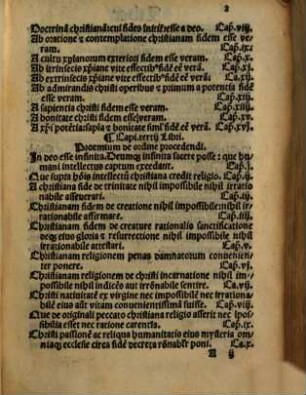 2
Doctrinā christianā: cui fides initit᷑ esse a deo. Cap̄. viij.
Ab oratione & contemplatione christianam fidem esse ve-
ram. Cap̄. ix.
A cultu xp̄ianorum exteriori fidem esse veram. Cap̄. x.
Ab itrinsecis xp̄iane vite effectib⁹ fidē eē verā. Ca. xi.
Ab extrinsecis xp̄iane vite effectib⁹ fidē eē verā. Ca. xij.
Ab admirandis christi operibus & primum a potentia fidē
esse veram. Cap̄. xiij.
A sapientia christi fidem esse veram. Cap̄. xiiij.
A bonitate christi fidem esse veram. Cap̄. xv.
A xp̄i potētia sapīa & bonitate simĺ fidē eē verā. Cap̄. xvj.
¶ Capi. tertij Libri.
Proemium de ordine procedendi.
In deo esse infinita. Deumq; infinita facere posse: que hu-
mani intellectus captum excedant. Cap̄. i.
Que supra hoīs intellectū christiana credit religio. Cap̄. ij
A christiana fide de trinitate nihil impossibile nihil irratio
nabile asseuerari. Cap̄. iij.
Christianam fidem de creatione nihil impossibile: nihil ir-
rationabile affirmare. Cap̄. iiij.
Christianam fidem de creature rationalis sanctificatione
deq; eius gloria & resurrectione nihil impossibile nihil
irrationabile attestari. Cap̄. v.
Christianam religionem penas damnatorum conuenien-
ter ponere. Cap̄. vj.
Christianam religionem de christi incarnatione nihil im-
possibile nihil indicēs aut irrōnabile sentire. Ca. vij.
Christi natiuitatē ex virgine nec impossibilē nec irrationa-
bilē eiusq; vitam conuenientissimā fuisse. Cap̄. viij.
Que de originali peccato christiana religio asserit nec īpos-
sibilia esset nec ratione carentia. Cap̄. ix.
Christi passionē ac reliqua humanitatis eius mysteria om-
niaq; ecclesie circa fidē decreta rōnabilr̄ poni. Ca. x.
A ij